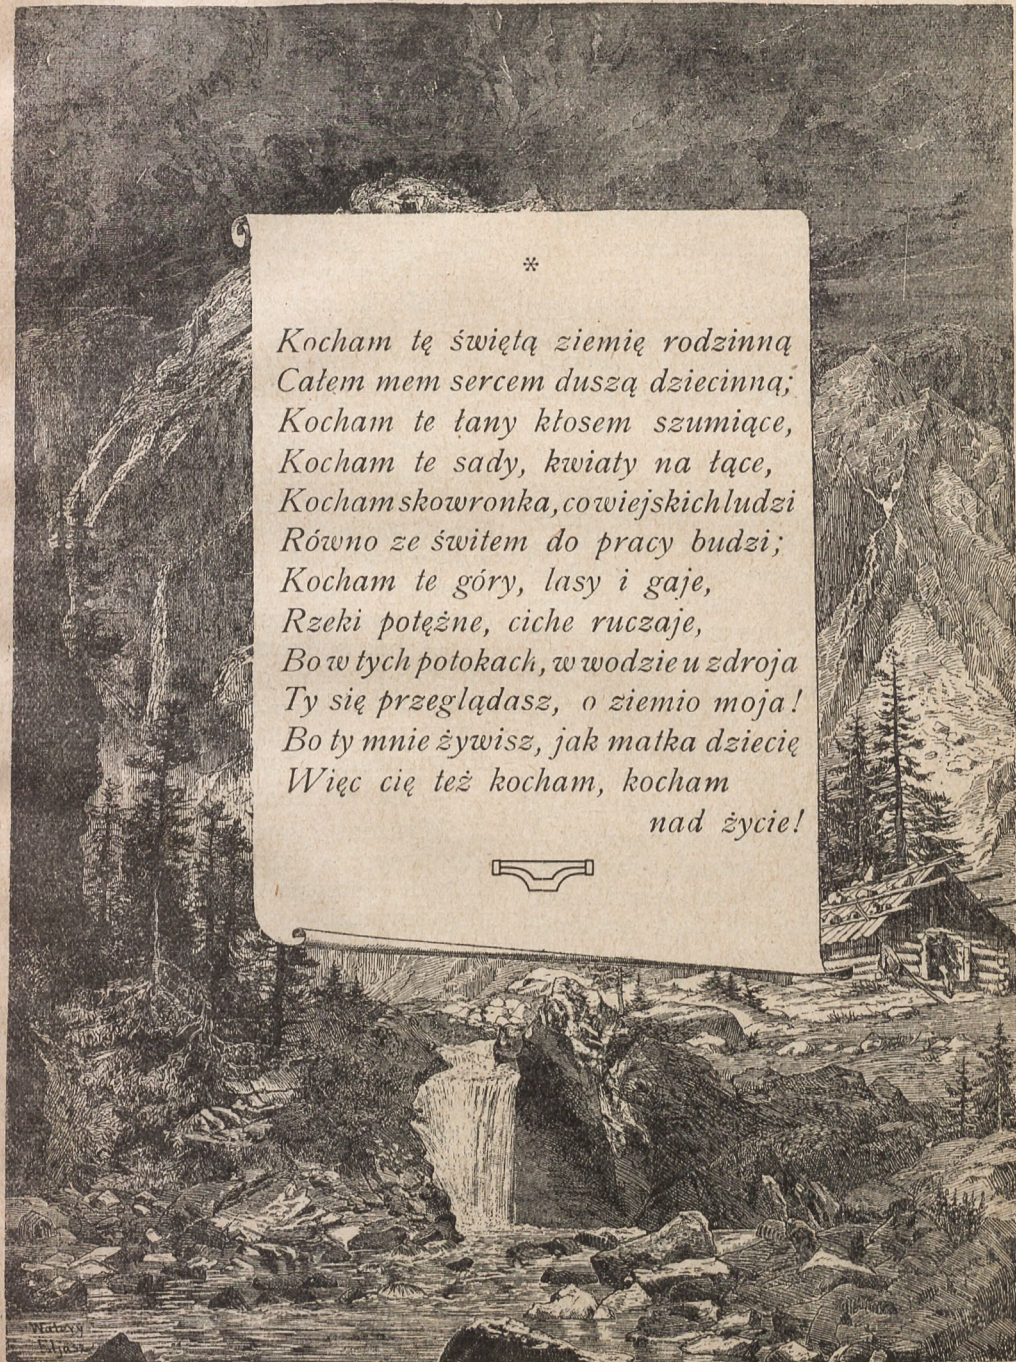 *
Kocham tę świętą ziemię rodzinną
Całem mem sercem duszą dziecinną;
Kocham te łany kłosem szumiące,
Kocham te sady, kwiaty na łące,
Kocham skowronka, co wiejskich ludzi
Równo ze świtem do pracy budzi;
Kocham te góry, lasy i gaje,
Rzeki potężne, ciche ruczaje,
Bo w tych potokach, w wodzie u zdroja
Ty się przeglądasz, o ziemio moja!
Bo ty mnie żywisz, jak matka dziecię
Więc cię też kocham, kocham
nad życie!
Walery
Eljasz